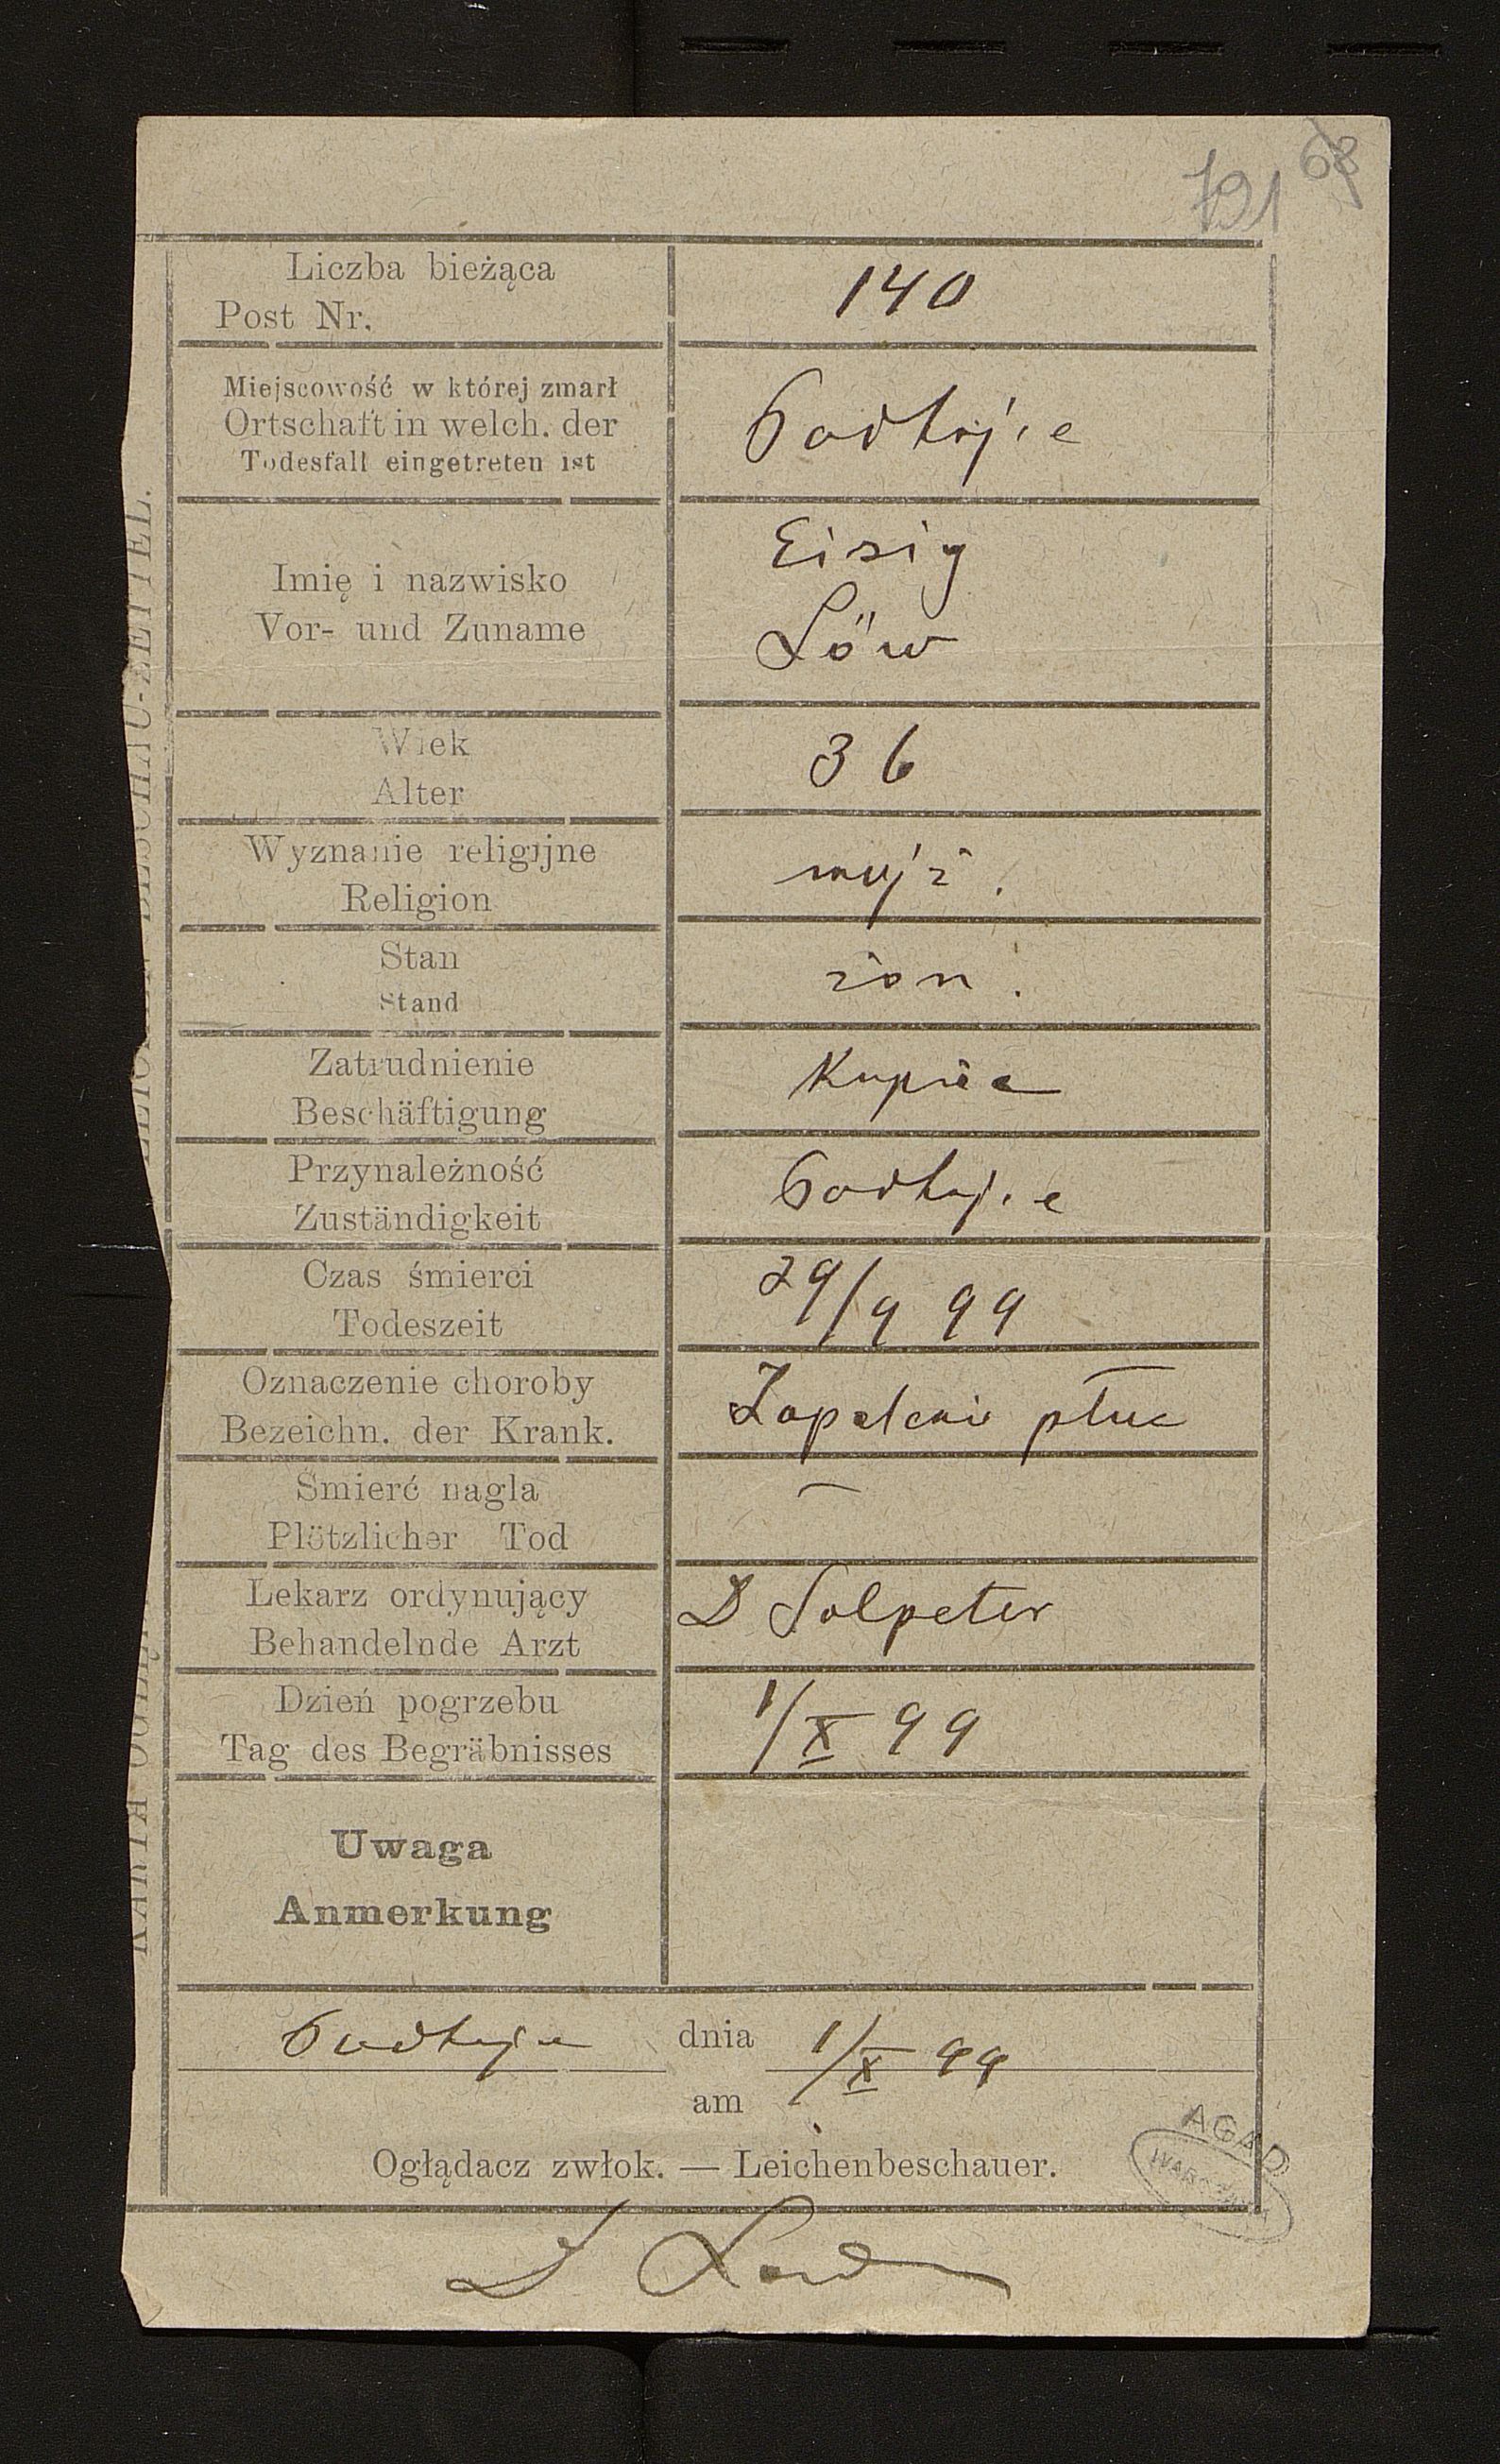 791 68
Liczba bieżąca
Post Nr.
140
Miejscowość w której zmarł
Ortschaft in welch. der
Todesfall eingetreten ist
Podhajce
Imię i nazwisko
Vor- und Zuname
Eisig
Löw
Wiek
Alter
36
Wyznanie religijne
Religion
mojż.
Stan
Stand
żon.
Zatrudnienie
Beschäftigung
Kupiec
Przynależność
Zuständigkeit
Podhajce
Czas śmierci
Todeszeit
29/9 99
Oznaczenie choroby
Bezeichn. der Krank.
Zapalenie płuc
Śmierć nagla
Plötzlicher Tod
—
Lekarz ordynujący
Behandelnde Arzt
D Salpeter
Dzień pogrzebu
Tag des Begräbnisses
1/X 99
Uwaga
Anmerkung
Podhajce dnia 1/X 99
am
Oglądacz zwłok. — Leichenbeschauer.
AGAD
WARSZAWA